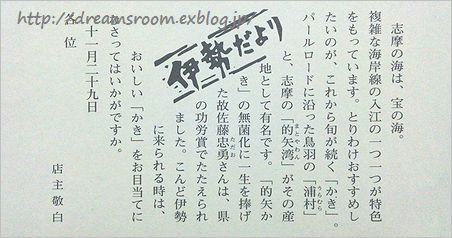 http://dreamsroom.exblog.jp/
伊勢だより
志摩の海は、宝の海。
複雑な海岸線の入江の一つ一つが特色
をもっています。とりわけおすすめし
たいのが、これから旬が続く「かき」。
パールロードに沿った鳥羽の「浦村」
と、志摩の「的矢湾」がその産
地として有名です。「的矢か
き」の無菌化に一生を捧げ
た故佐藤忠勇さんは、県
の功労賞でたたえられ
ました。こんど伊勢
に来られる時は、
おいしい「かき」をお目当てに
なさってはいかがですか。
十一月二十九日
店主敬白
各位